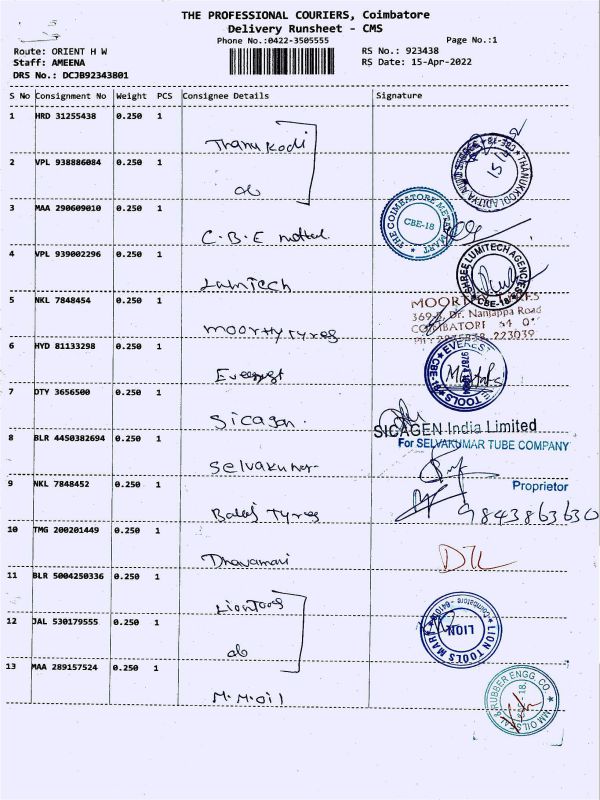 THE PROFESSIONAL COURIERS, Coimbatore
Delivery Runsheet - CMS
Phone No.:0422-3505555
Page No.:1
Route: ORIENT H W
Staff: AMEENA
DRS No.: DCJB92343801
RS No.: 923438
RS Date: 15-Apr-2022
S No Consignment No Weight PCS Consignee Details Signature
1 HRD 31255438 0.250 1 Thanukodi
2 VPL 938886084 0.250 1 do
THANUKKODI ADITYA
3 MAA 290609010 0.250 1 C.B.E mettal
THE COIMBATORE METAL MART
CBE-18
4 VPL 939002296 0.250 1 Lumtech
SHREE LUMITECH AGENCIES
CBE-18
5 NKL 7848454 0.250 1 moorthy tyres
MOORTHY TYRES
Dr. Nanjappa Road
COIMBATORE
6 HYD 81133298 0.250 1 Everest
EVEREST TOOLS
7 DTY 3656500 0.250 1 Sicagen.
SICAGEN India Limited
8 BLR 4450382694 0.250 1 Selvakumar
For SELVAKUMAR TUBE COMPANY
Proprietor
9 NKL 7848452 0.250 1 Balaj Tyres
9843863630
10 TMG 200201449 0.250 1 Dhavamani
11 BLR 5004250336 0.250 1 Liontools
12 JAL 530179555 0.250 1 do
LION TOOLS MART
LION
Coimbatore
13 MAA 289157524 0.250 1 M.M.oil
MM OIL SEAL & RUBBER ENGG. CO.